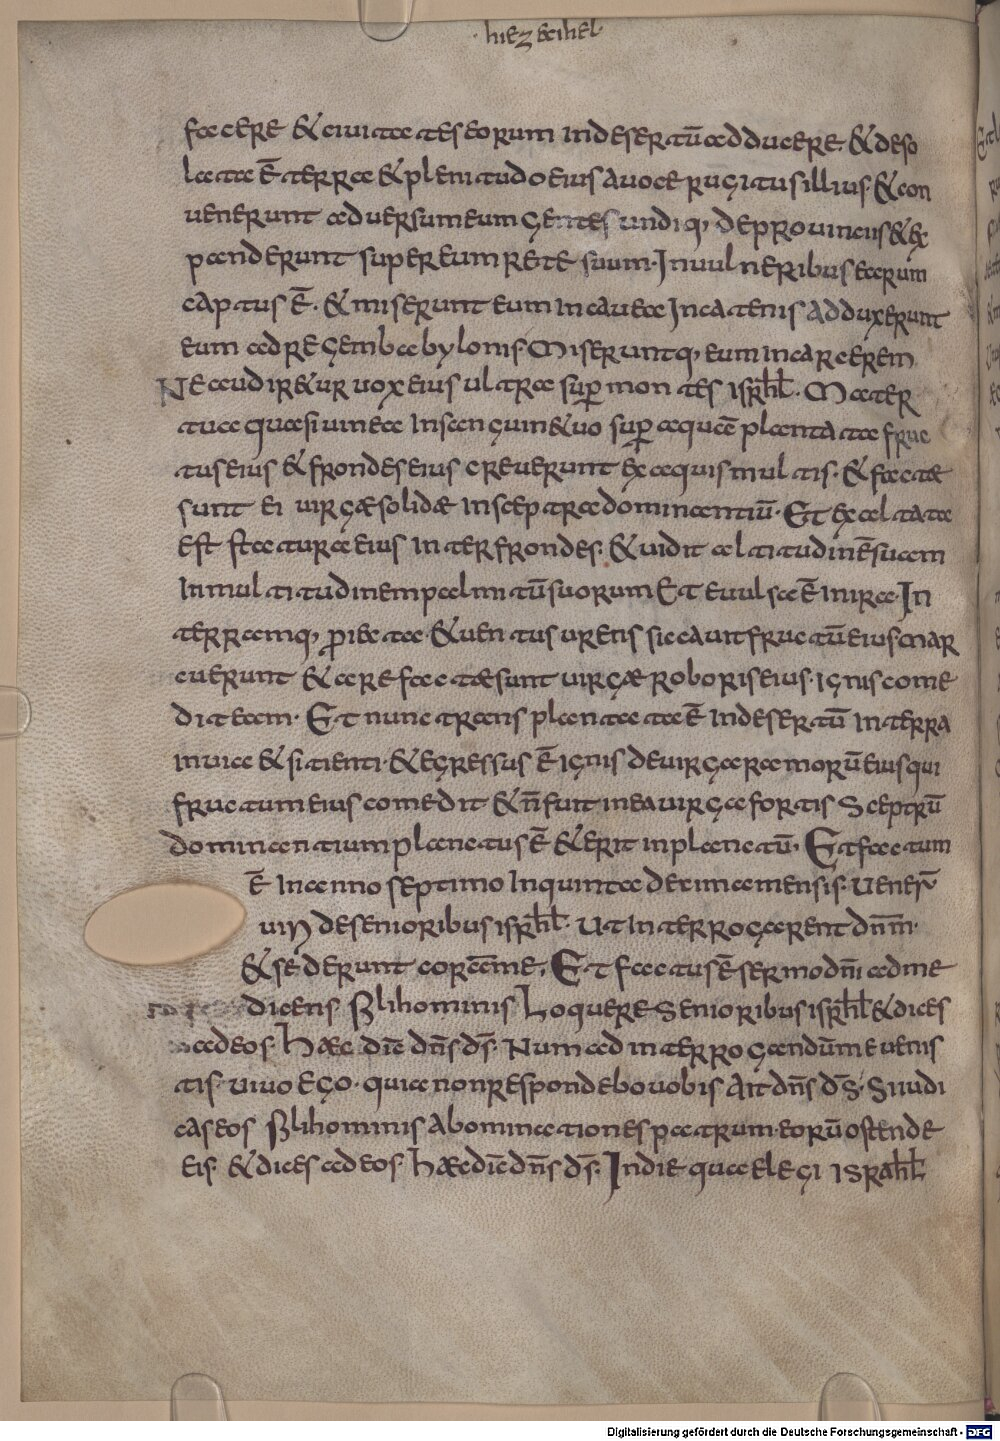 · hiezecihel·
facere & ciuitates eorum indesertū adducere· & deso
lata ē terra & plenitudo eius auoce rugitus illius· & con
uenerunt aduersum eum gentes undiq; deprouinciis & ex
panderunt super eum rete suum· Inuulneribus earum
captus ē· & miserunt eum incauea Incatenis adduxerunt
eum adregem babylonis· Miseruntq; eum incarcerem
Ne audiretur uox eius ultra sup montes isrhl· Mater
tua quasi uinea Insanguine tuo sup aquā plantata fruc
tus eius & frondes eius creuerunt ex aquis multis· & factae
sunt ei uirgae solidae insceptra dominantiū· Et exaltata
est statura eius inter frondes· & uidit altitudinē suam
Inmultitudinem palmitū suorum Et euulsa ē inira· In
terramq; proiecta· & uentus urens siccauit fructū eius Mar
cuerunt & arefactae sunt uirgae roboris eius· ignis come
dit eam· Et nunc transplantata ē indesertū interra
inuia & sitienti· & egressus ē ignis deuirga ramorū eius qui
fructum eius comedit & ñ fuit inea uirga fortis Sceptrū
dominantium planctus ē & erit inplanctū· Et factum
ē Inanno septimo Inquinta decima mensis· Uener̄
uiri desenioribus isrhl· Ut interrogarent dnm·
& sederunt coram me, Et factus ē sermo dni adme
dicens· Fili hominis Loquere Senioribus isrhl & dices
adeos· Haec dic dns ds· Num ad interrogandū me uenis
tis· uiuo ego· quia nonrespondebo uobis Ait dns ds· Si iudi
cas eos Fili hominis Abominationes patrum eorū ostende
eis· & dices adeos· Haec dic dns ds· Indie qua elegi israhl
Digitalisierung gefördert durch die Deutsche Forschungsgemeinschaft - DFG